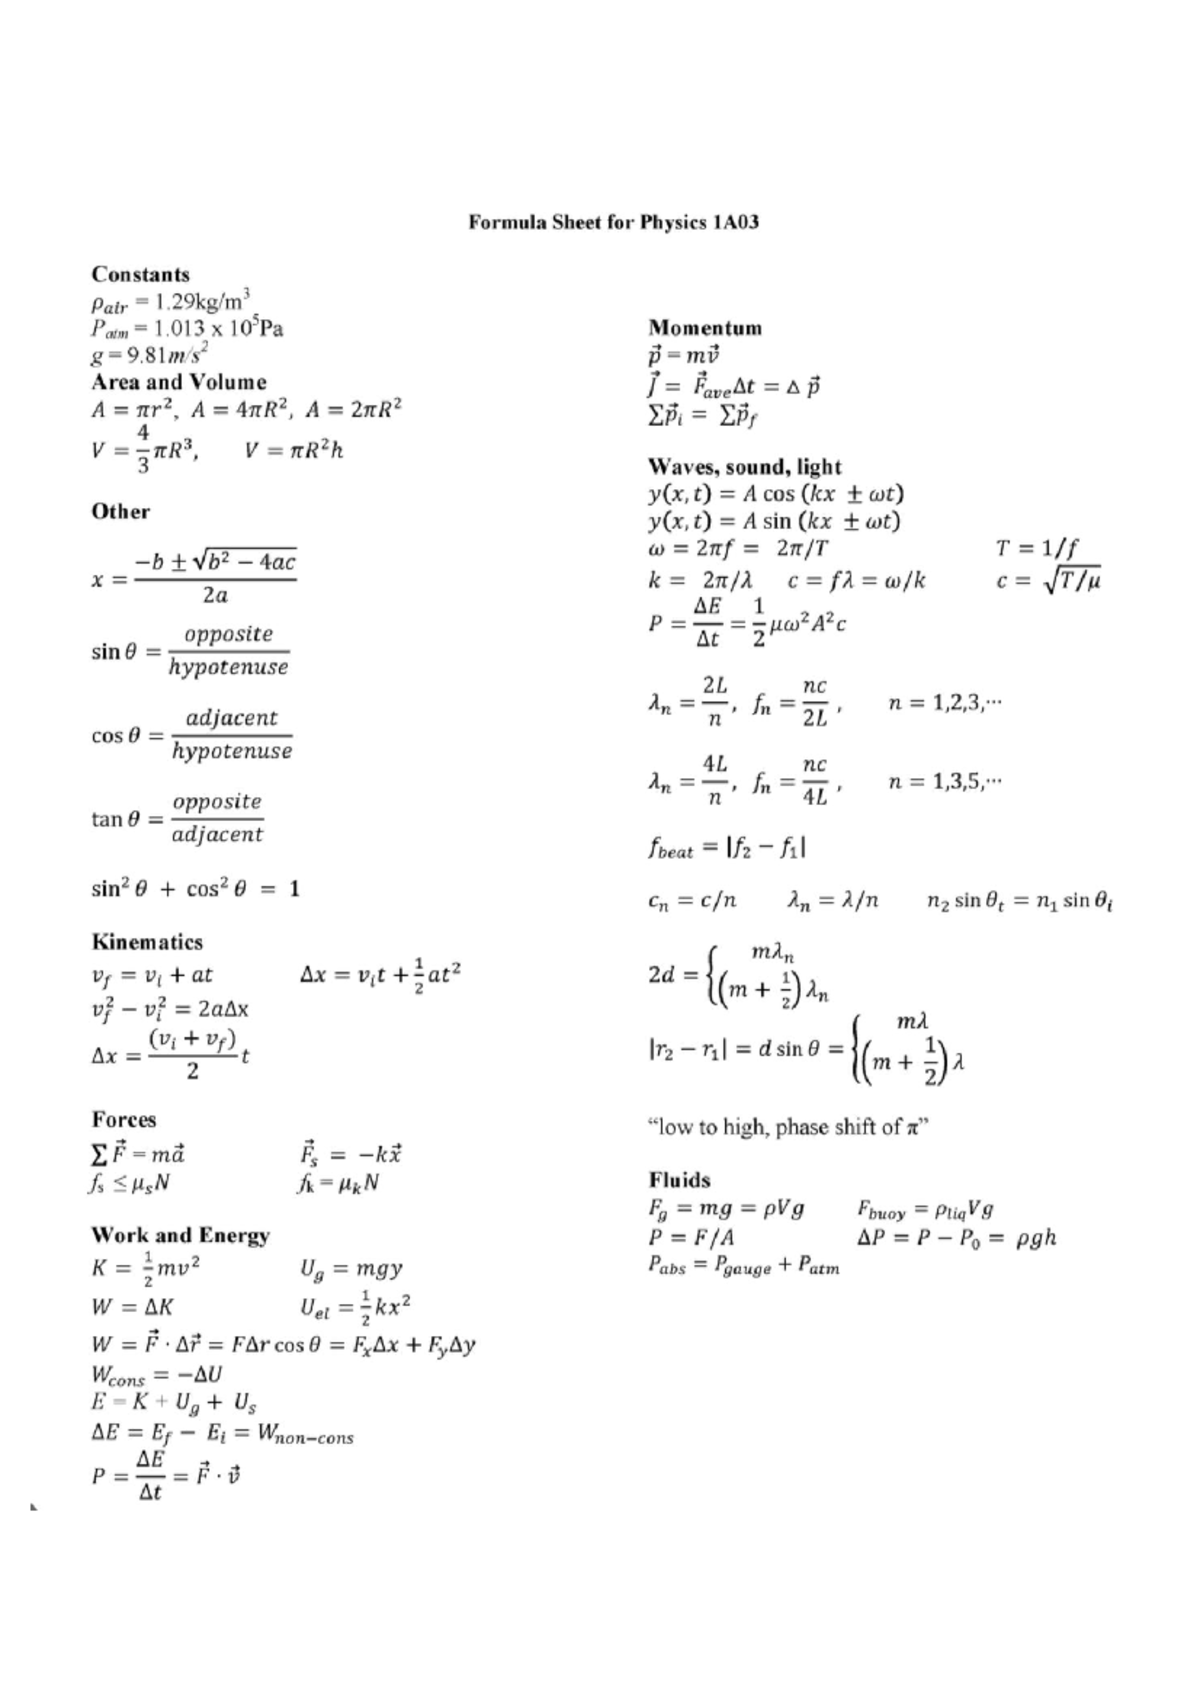 Formula Sheet for Physics 1A03
Constants
ρair = 1.29kg/m³
Patm = 1.013 x 10⁵Pa
g = 9.81m/s²
Area and Volume
A = πr², A = 4πR², A = 2πR²
V = 4/3 πR³, V = πR²h
Other
x = (−b ± √(b² − 4ac)) / 2a
sin θ = opposite / hypotenuse
cos θ = adjacent / hypotenuse
tan θ = opposite / adjacent
sin² θ + cos² θ = 1
Kinematics
v_f = v_i + at Δx = v_i t + ½at²
v_f² − v_i² = 2aΔx
Δx = (v_i + v_f)/2 t
Forces
∑F⃗ = ma⃗ F⃗_s = −kx⃗
f_s ≤ μ_s N f_k = μ_k N
Work and Energy
K = ½mv² U_g = mgy
W = ΔK U_el = ½kx²
W = F⃗ · Δr⃗ = FΔr cos θ = F_xΔx + F_yΔy
W_cons = −ΔU
E = K + U_g + U_s
ΔE = E_f − E_i = W_non−cons
P = ΔE/Δt = F⃗ · v⃗
Momentum
p⃗ = mv⃗
J⃗ = F⃗_ave Δt = Δ p⃗
∑p⃗_i = ∑p⃗_f
Waves, sound, light
y(x, t) = A cos (kx ± ωt)
y(x, t) = A sin (kx ± ωt)
ω = 2πf = 2π/T T = 1/f
k = 2π/λ c = fλ = ω/k c = √(T/μ)
P = ΔE/Δt = ½ μω²A²c
λ_n = 2L/n, f_n = nc/2L, n = 1,2,3,⋯
λ_n = 4L/n, f_n = nc/4L, n = 1,3,5,⋯
f_beat = |f₂ − f₁|
c_n = c/n λ_n = λ/n n₂ sin θ_t = n₁ sin θ_i
2d = { mλ_n
(m + ½) λ_n
|r₂ − r₁| = d sin θ = { mλ
(m + ½) λ
“low to high, phase shift of π”
Fluids
F_g = mg = ρVg F_buoy = ρ_liq Vg
P = F/A ΔP = P − P₀ = ρgh
P_abs = P_gauge + P_atm